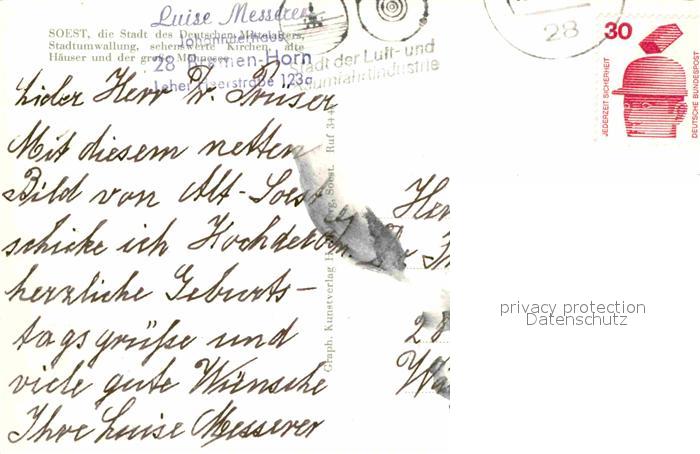 Luise Messerer
SOEST, die Stadt des Deutschen Mittelalters,
Johanniterhaus
Stadtumwallung, sehenswerte Kirchen, alte
28 Bremen-Horn
Häuser und der große
Leher Heerstraße 123a
Stadt der Luft- und
Raumfahrtindustrie
28
30
JEDERZEIT SICHERHEIT
DEUTSCHE BUNDESPOST
Lieber Herr Dr. Prüser
Mit diesem netten
Bild von Alt-Soest
schicke ich
herzliche Geburts-
tagsgrüße und
viele gute Wünsche
Ihre Luise Messerer
Graph. Kunstverlag Soest. Ruf
Her
Dr
28
privacy protection
Datenschutz